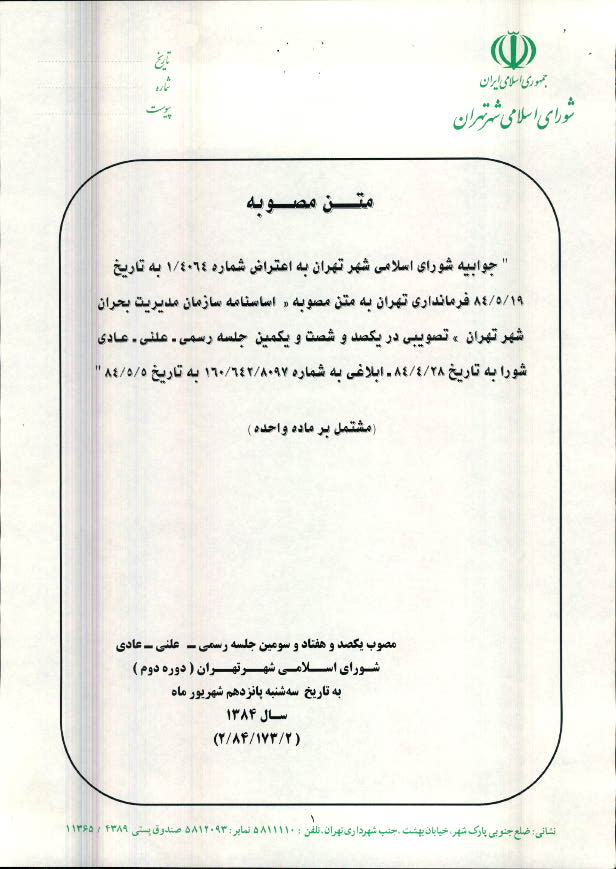 جمهوری اسلامی ایران
شورای اسلامی شهر تهران
تاریخ
شماره
پیوست
متن مصوبه
" جوابیه شورای اسلامی شهر تهران به اعتراض شماره ۱/۴۰۶۴ به تاریخ
۸۴/۵/۱۹ فرمانداری تهران به متن مصوبه « اساسنامه سازمان مدیریت بحران
شهر تهران » تصویبی در یکصد و شصت و یکمین جلسه رسمی ـ علنی ـ عادی
شورا به تاریخ ۸۴/۴/۲۸ ـ ابلاغی به شماره ۱۶۰/۶۴۲/۸۰۹۷ به تاریخ ۸۴/۵/۵ "
(مشتمل بر ماده واحده)
مصوب یکصد و هفتاد و سومین جلسه رسمی ـ علنی ـ عادی
شورای اسلامی شهر تهران ( دوره دوم )
به تاریخ سه‌شنبه پانزدهم شهریور ماه
سال ۱۳۸۴
(۲/۸۴/۱۷۳/۲)
۱
نشانی: ضلع جنوبی پارک شهر، خیابان بهشت ، جنب شهرداری تهران. تلفن : ۵۸۱۱۱۱۰ نمابر : ۵۸۱۲۰۹۳ صندوق پستی ۴۳۸۹ / ۱۱۳۶۵